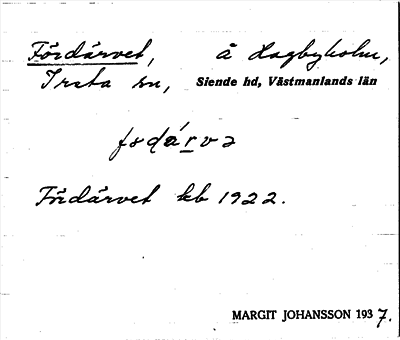 Fördärvet, å Hagbyholm,
Irsta sn, Siende hd, Västmanlands län
fɜdárvə
Fördärvet kb 1922.
MARGIT JOHANSSON 1937.